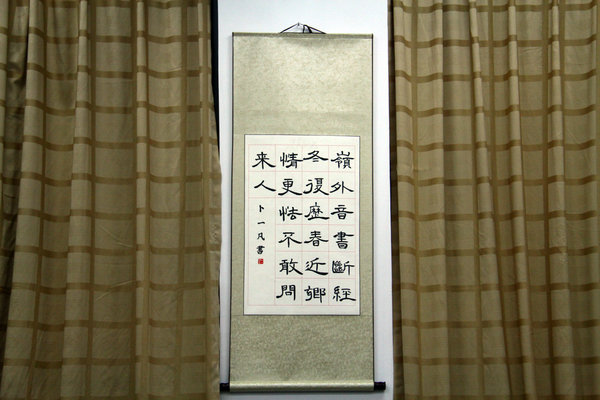 嶺外音書斷經
冬復歷春近鄉
情更怯不敢問
来人
卜一凡書